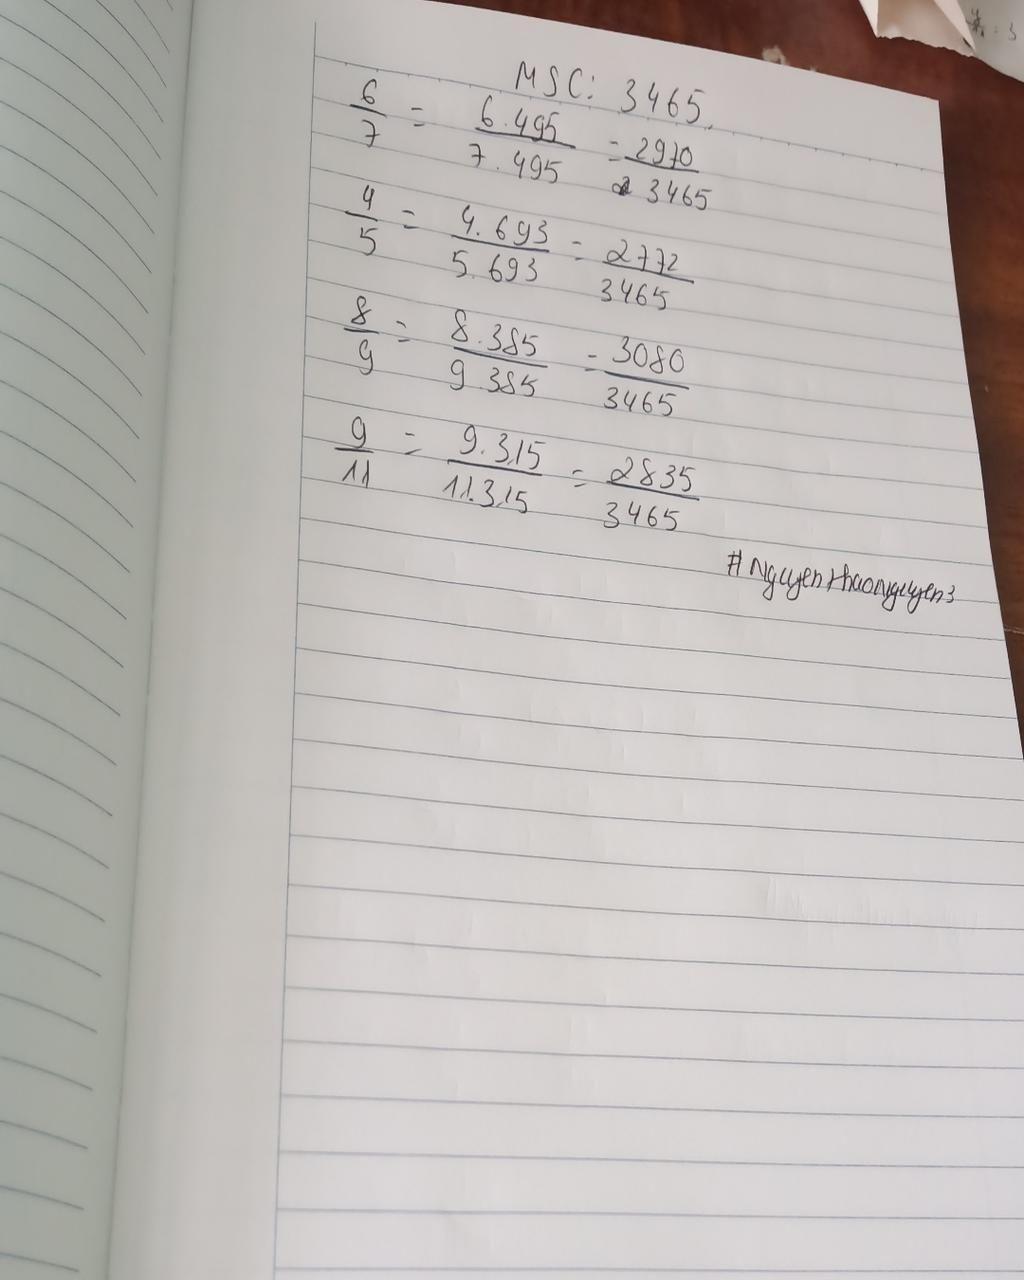 MSC: 3465.
6/7 = 6.495/7.495 = 2970/3465
4/5 = 4.693/5.693 = 2772/3465
8/9 = 8.385/9 385 = 3080/3465
9/11 = 9.315/11.315 = 2835/3465
#Nguyenthaonguyen3